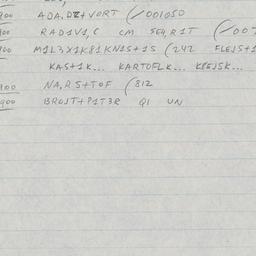 900 ADA, DZ+VORT (/001050
900 RAD1V1, C CM SEH, R1T (/00
900 M1L3X1K81KN1S+1S (242 FLEJS+1
KAS+1K... KARTOFLK... KREJSK...
900 NA, RS+TOF (812
900 BROJT+P1T3R QI UN